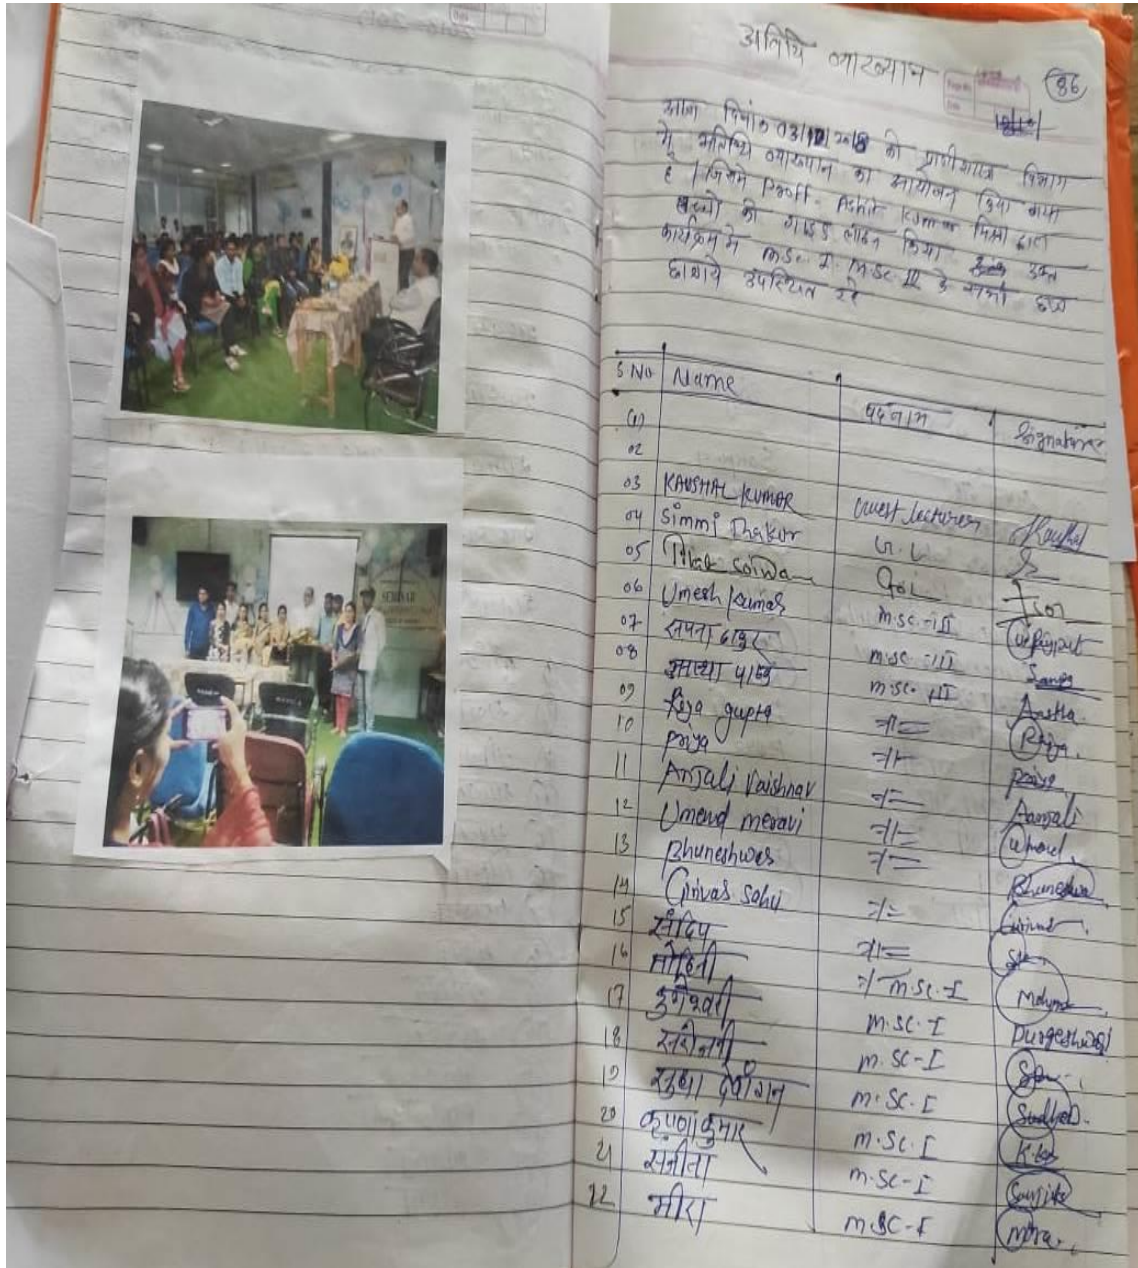 SEMINAR
अतिथि व्याख्यान
86
आज दिनांक 03/12/2018 को प्राणीशास्त्र विभाग
में अतिथि व्याख्यान का आयोजन किया गया
है। जिसमे Proff. Ashit Kumar मिश्रा द्वारा
बच्चो को गाइड लाइन किया उक्त
कार्यक्रम मे M.Sc. I. M.Sc. III के सभी छात्र
छात्राये उपस्थित रहे
S.No Name पदनाम Signature
01
02
03 KAUSHAL KUMAR Guest lecturer Kaushal
04 Simmi Thakur
05
06 Umesh Kumar M.SC-III
07 सपना ठाकुर M.SC-III
08 आस्था पाण्डे M.SC-III Aastha
09 Riya gupta Riya
10 Priya Priya
11 Anjali Vaishnav Aanjali
12 Umend meravi Umend
13 Bhuneshwar Bhuneshwar
14 Girivar Sahu Girivar
15 संदिप
16 मोहिनी M.SC-I
17 दुर्गेश्वरी M.SC-I Durgeshwari
18 सरोजनी M.SC-I
19 सुधा देवांगन M.SC-I
20 कृष्णा कुमार M.SC-I
21 संगीता M.SC-I
22 मीरा M.SC-I